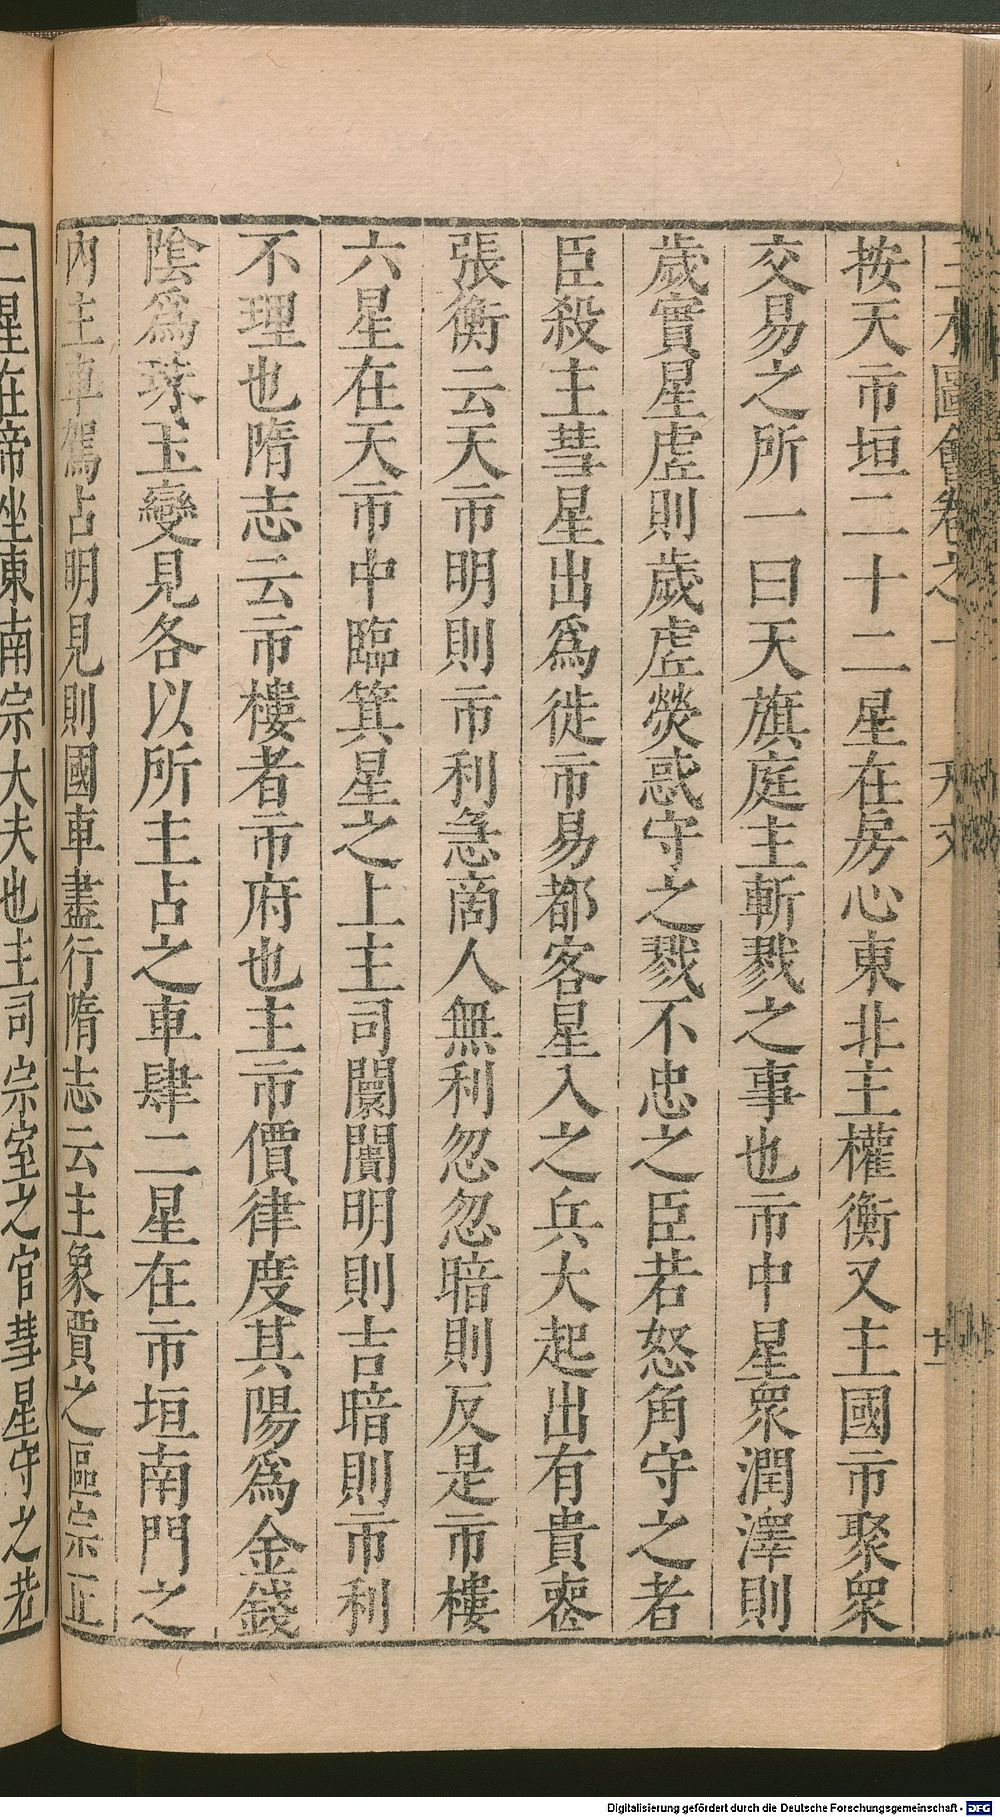 三才圖會卷之一 天文 廿二
按天市垣二十二星在房心東非主權衡又主國市聚衆
交易之所一曰天旗庭主斬戮之事也市中星衆潤澤則
歲實星虛則歲虛熒惑守之戮不忠之臣若怒角守之者
臣殺主彗星出爲徙市易都客星入之兵大起出有貴喪
張衡云天市明則市利急商人無利忽忽暗則反是市樓
六星在天市中臨箕星之上主司闤闠明則吉暗則市利
不理也隋志云市樓者市府也主市價律度其陽爲金錢
陰爲珠玉變見各以所主占之車肆二星在市垣南門之
內主車駕占明見則國車盡行隋志云主象賈之區宗正
二星在帝坐東南宗大夫也主司宗室之官彗星守之若
Digitalisierung gefördert durch die Deutsche Forschungsgemeinschaft - DFG